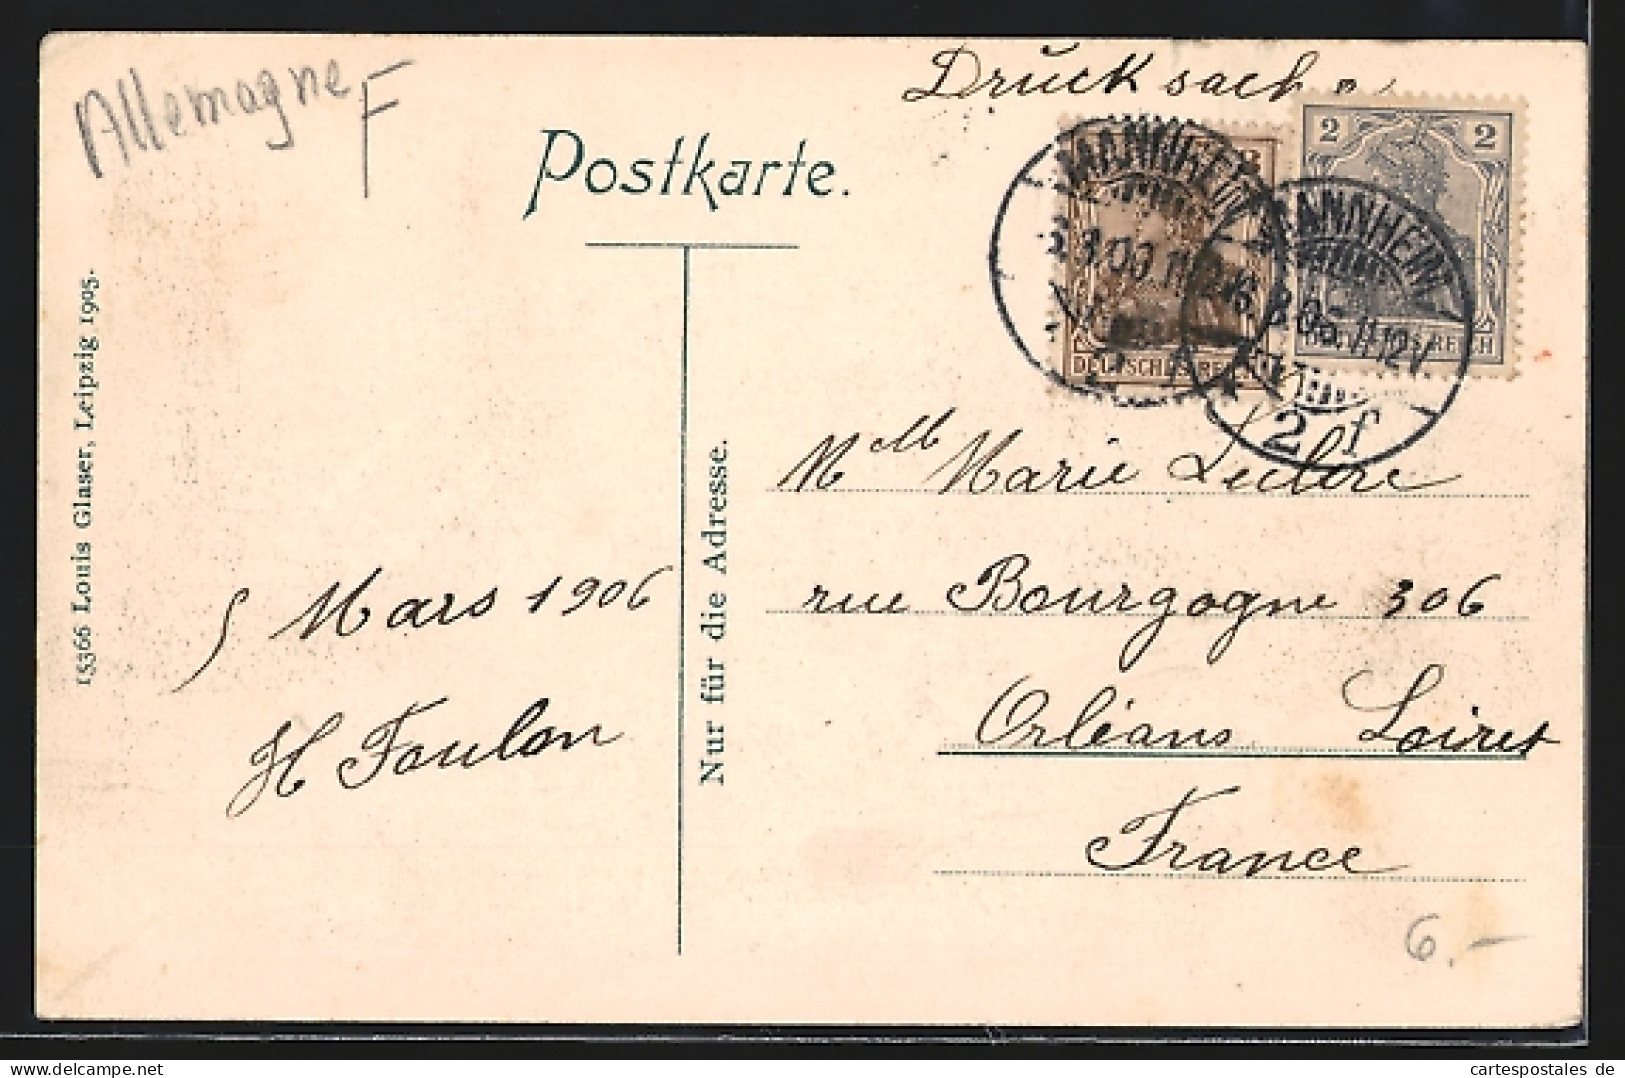 Allemagne F
Drucksache
Postkarte.
3
DEUTSCHES REICH
2 2
DEUTSCHES REICH
MANNHEIM
MANNHEIM
6.3.06.11-12V.
2 f
15366 Louis Glaser, Leipzig 1905.
Nur für die Adresse.
5 Mars 1906
H Foulon
Mlle Marie Leclere
rue Bourgogne 306
Orléans Loiret
France
6.-
cartespostales de